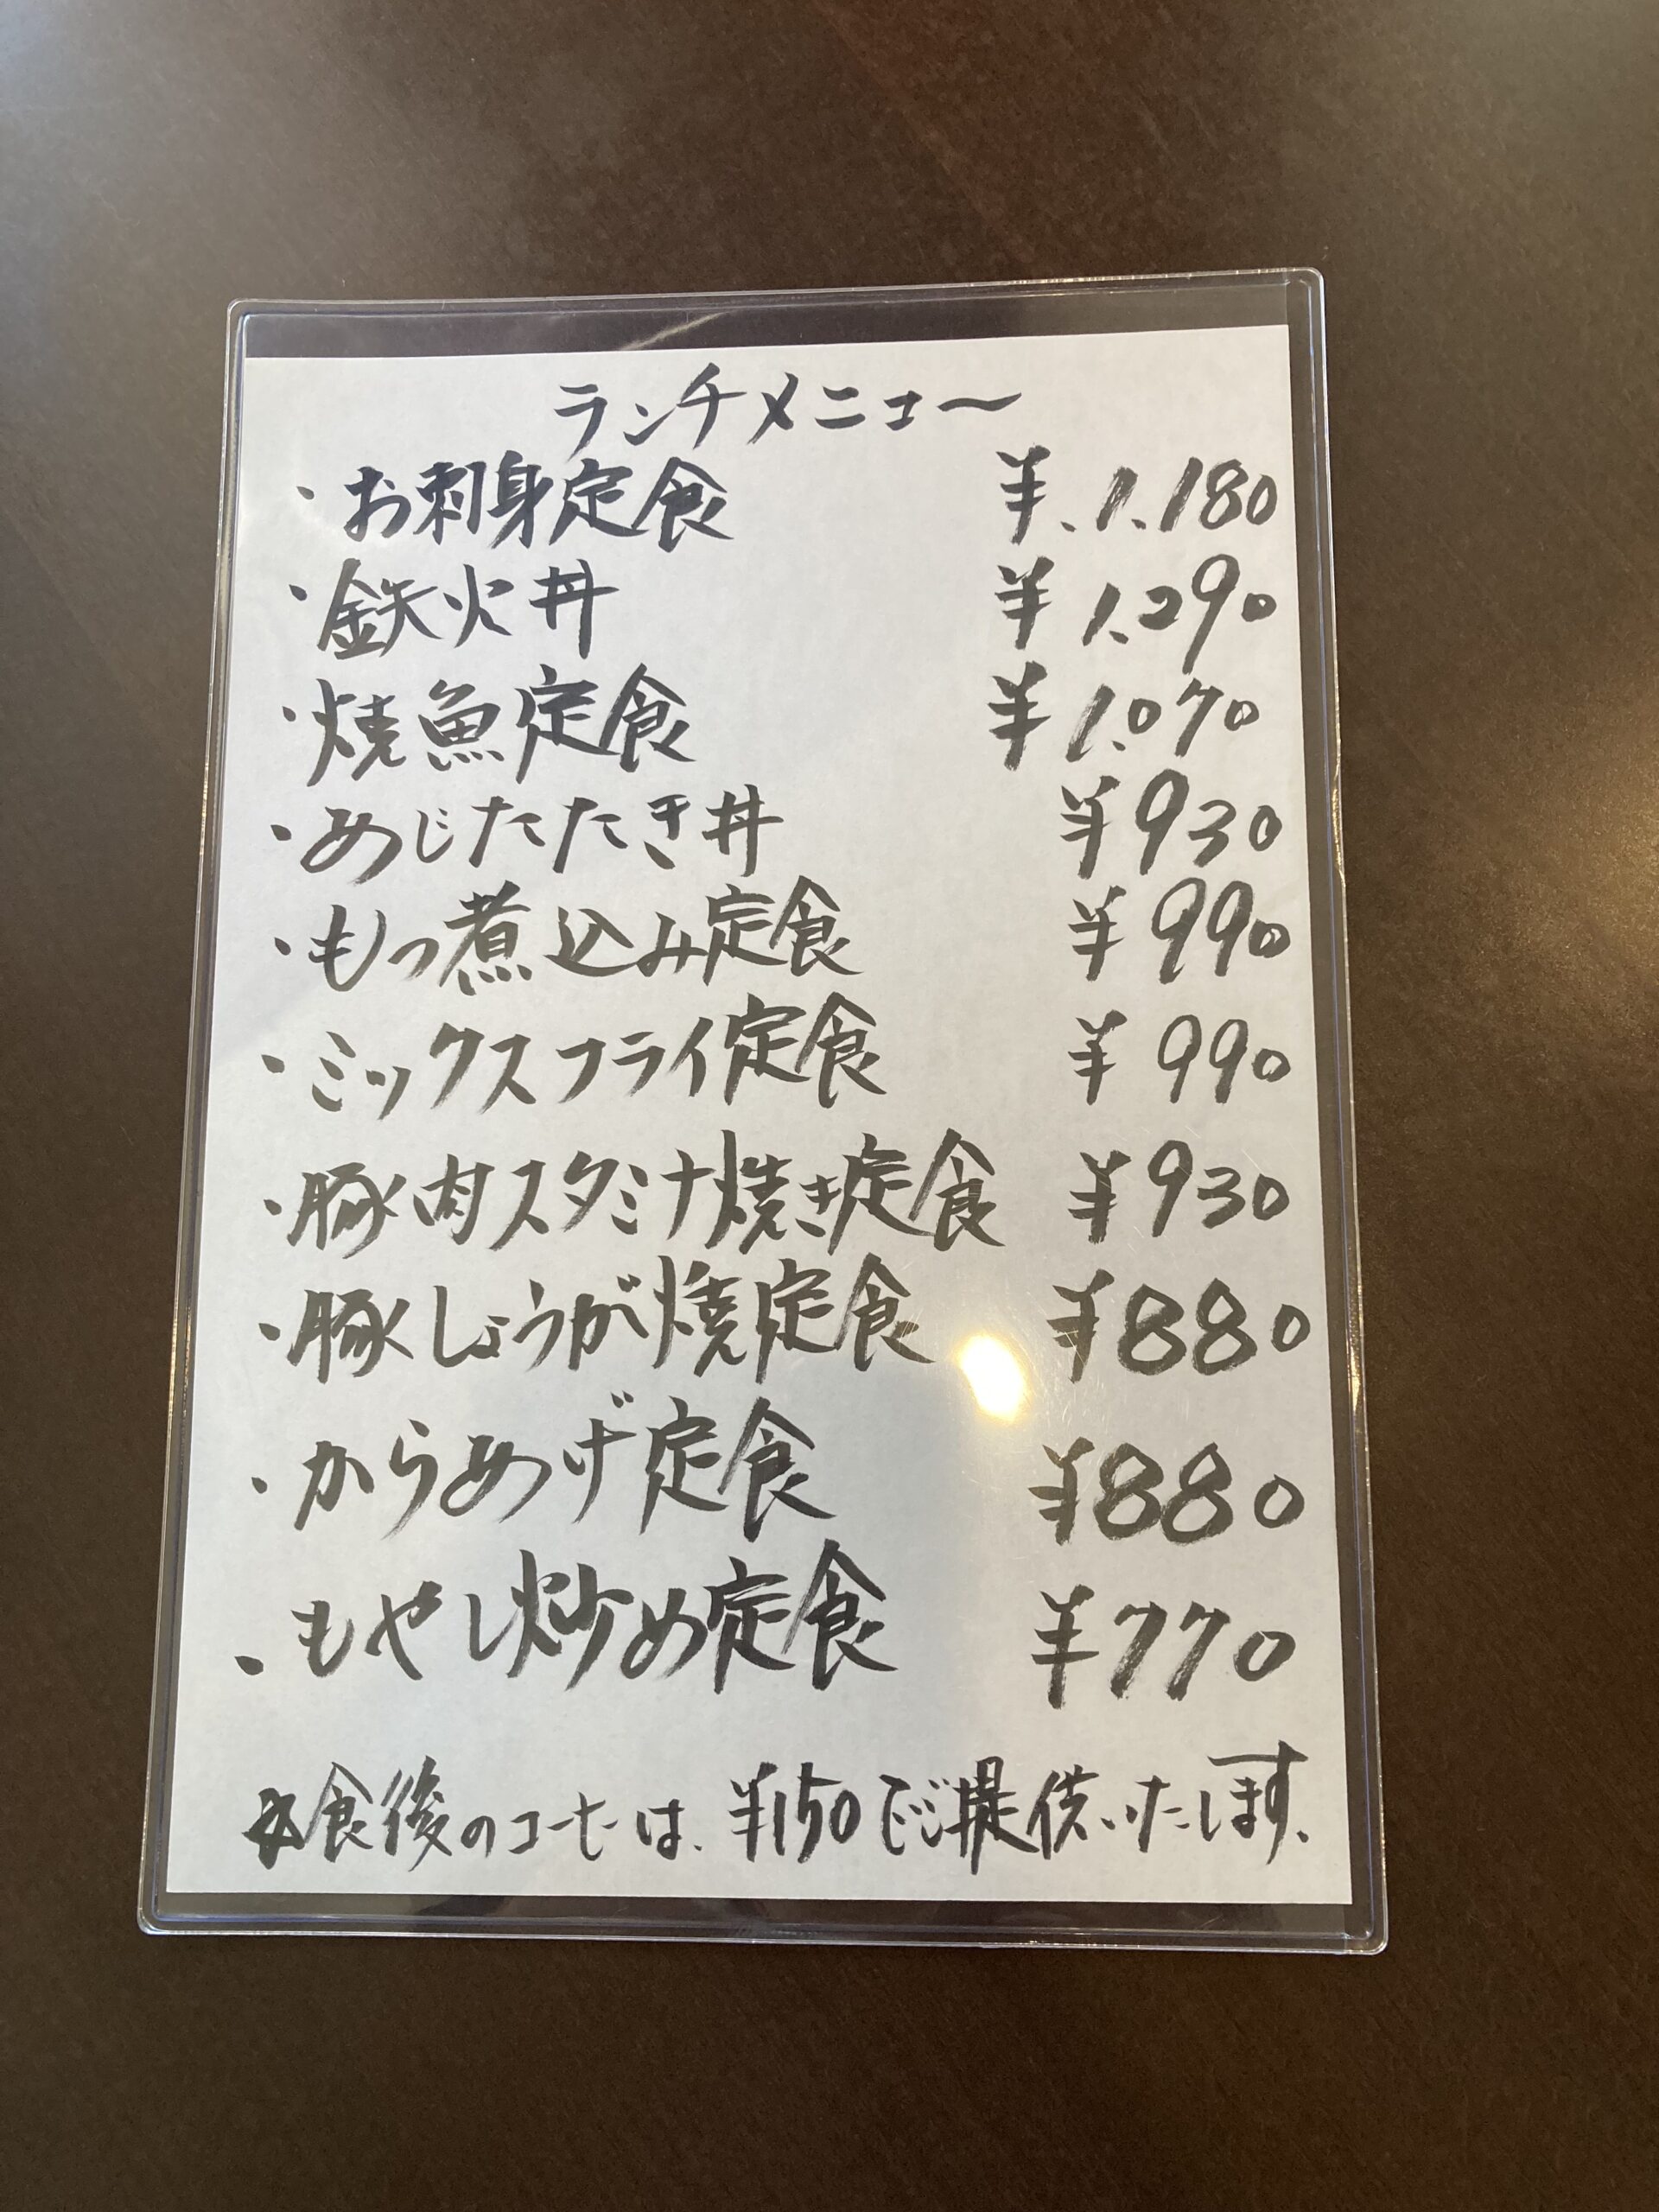 ランチメニュー
・お刺身定食 ¥.1.180
・鉄火丼 ¥1.290
・焼魚定食 ¥1.070
・あじたたき丼 ¥930
・もつ煮込み定食 ¥990
・ミックスフライ定食 ¥990
・豚肉スタミナ焼き定食 ¥930
・豚しょうが焼定食 ¥880
・からあげ定食 ¥880
・もやし炒め定食 ¥770
☆食後のコーヒーは、¥150でご提供いたします、